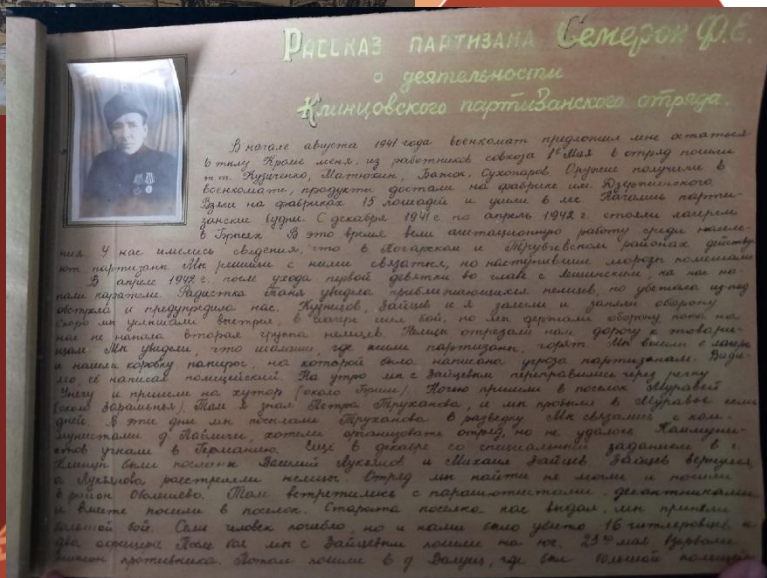 Рассказ партизана Семерок Ф.Е.
о деятельности
Клинцовского партизанского отряда.
В начале августа 1941 года военкомат предложил мне остаться
в тылу Кроме меня, из работников совхоза 1е Мая в отряд пошли
т.т. Кузиченко, Матюхин, Сухопаров Оружие получили в
военкомате, продукты достали на фабрике им. Дзержинского
Взяли на фабриках 15 лошадей и ушли в лес Начались парти-
занские будни. С декабря 1941 г. по апрель 1942 г. стояли лагерем
в В это время вели агитационную работу среди населе-
ния У нас имелись сведения, что в Погарском и Трубчевском районах действу-
ют партизаны Мы решили с ними связаться, но наступившие морозы помешали
В апреле 1942 г. после ухода первой девятки во главе с на нас на-
пали каратели. Радистка Таня увидела приближающихся немцев, но убежала из под
обстрела и предупредила нас. Кузнецов, Зайцев и я залегли и заняли оборону
Скоро мы услышали выстрел, в лагере шел бой, но мы держали оборону, пока на
нас не напала вторая группа немцев. Немцы отрезали нам дорогу к товари-
щам Мы увидели, что шалаши, где жили партизаны, горят. Мы вышли с лагеря
и нашли коробку папирос, на которой была написана угроза партизанам. Види-
мо, её написал полицейский. На утро мы с Зайцевым переправились через речку
Унечу и пришли на хутор (около Ночью пришли в поселок Муравей
(около Там я знал Петра Труханова, и мы пробыли в Муравье семь
дней В эти дни мы посылали Труханова в разведку Мы связались с ком-
мунистами д. хотели организовать отряд, но не удалось Коммунис-
тов угнали в Германию. Еще в декабре со специальным заданием в г.
Клинцы были посланы Василий Лукьянов и Михаил Зайцев Зайцев вернулся,
а Лукьянова расстреляли немцы. Отряд мы найти не могли и пошли
в район Там встретились с парашютистами десантниками
и вместе пошли в поселок. Староста поселка нас выдал, мы приняли
большой бой. Семь человек погибло, но и нами было убито 16 гитлеровцев и
два офицера После боя мы с Зайцевым пошли на юг. 23го мая взорвали
эшелон противника. Потом пошли в д. где был большой